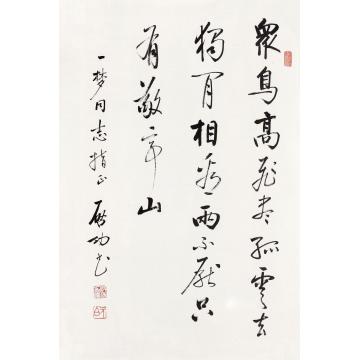 眾鳥高飛盡孤雲去
獨閒相看兩不厭只
有敬亭山
一梦同志指正 啟功书